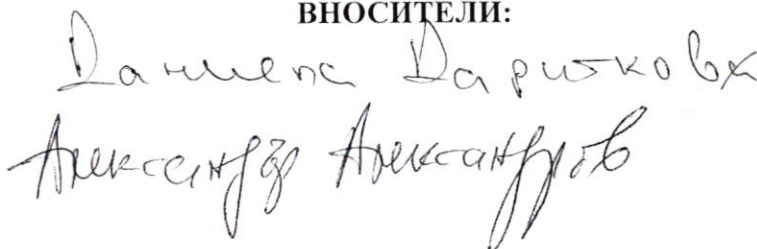 ВНОСИТЕЛИ:
Даниела Дариткова
Александър Александров